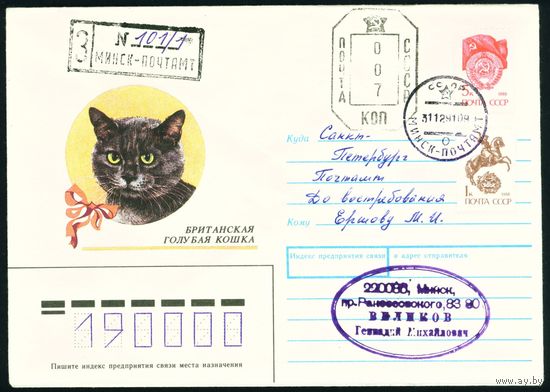 З N 101/1
МИНСК-ПОЧТАМТ
ПОЧТА СССР
0
0
7
КОП
5к 1988
ПОЧТА СССР
СССР
311291 09
МИНСК-ПОЧТАМТ
1к 1988
ПОЧТА СССР
БРИТАНСКАЯ
ГОЛУБАЯ КОШКА
Куда Санкт-
Петербург
Почтамт
До востребования
Кому Ершову М. И.
Индекс предприятия связи и адрес отправителя
Минск,
83 90
ВЕЛИКОВ
Геннадий Михайлович
190000
Пишите индекс предприятия связи места назначения
www.ay.by